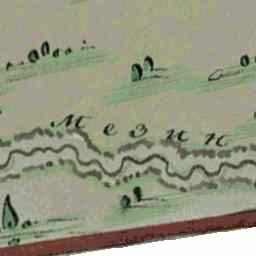 Мезин